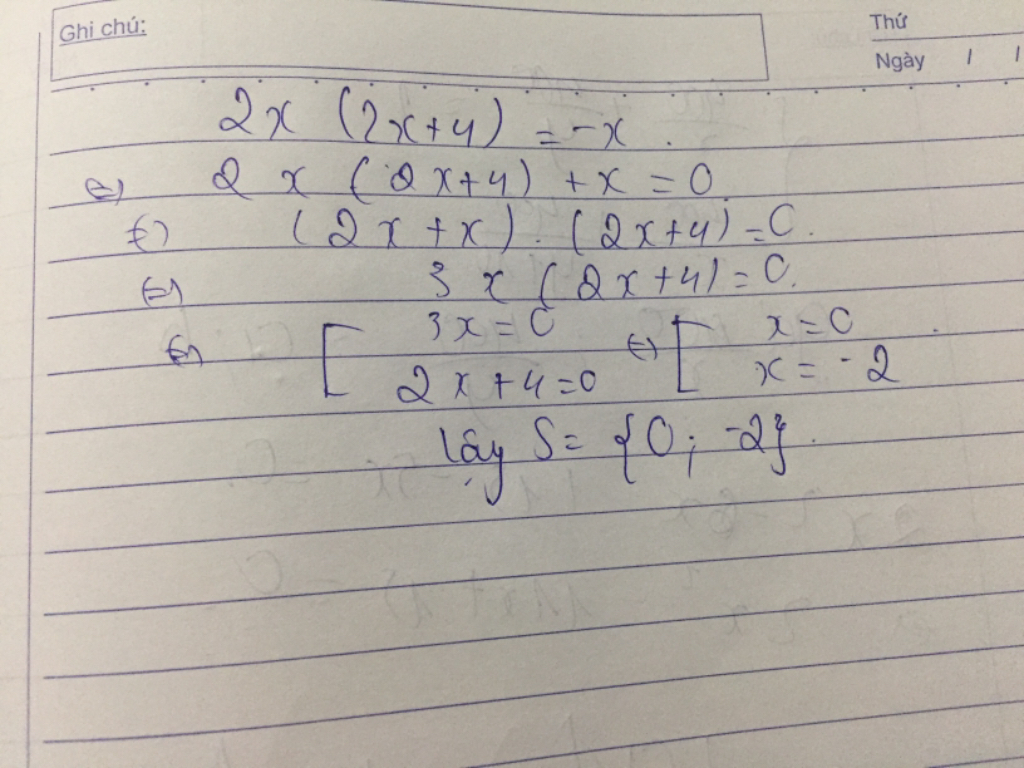 Ghi chú:
Thứ
Ngày / /
2x (2x+4) = -x .
⇔ 2 x ( 2x+4) + x = 0
⇔ (2x + x) . (2x+4) = 0 .
⇔ 3 x (2x+4) = 0.
⇔ [ 3x = 0 ⇔ [ x = 0 .
2x+4=0 x = -2
Vậy S = {0; -2} .